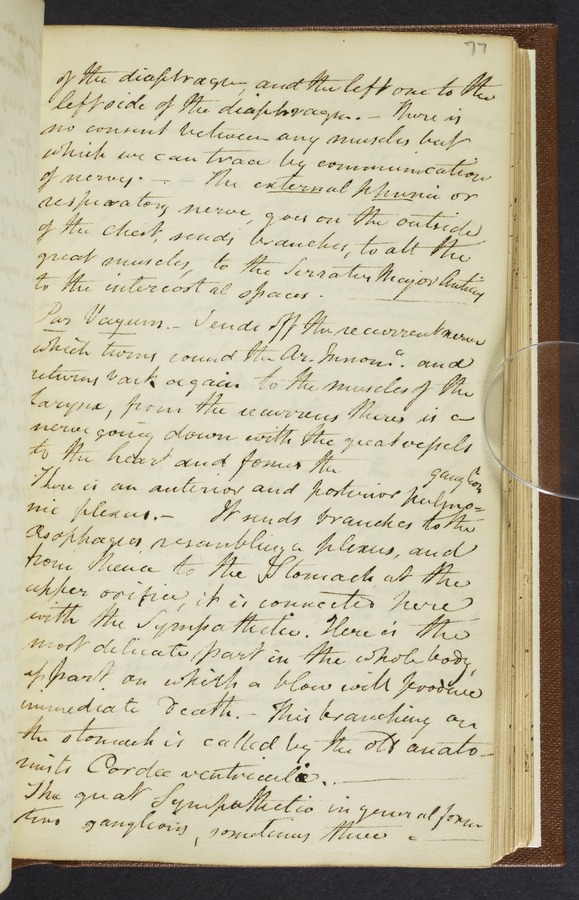 77
of the diaphragm, and the left one to the
left side of the diaphragm. - There is
no consent between any muscles but
which we can trace by communication
of nerves. - - The external phrenic or
respiratory nerve, goes on the outside
of the chest, sends branches, to all the
great muscles, to the Serratus Major Anticus
to the intercostal spaces. -
Par Vagum. - Sends off the recurrent nerve
which turns round the Ar. Innom.a and
returns back again to the muscles of the
larynx, from the recurrens there is a
nerve going down with the great vessels
to the heart and forms the
ganglion
There is an anterior and posterior pulmo=
nic plexus. - It sends branches to the
Œsophagus, resembling a plexus, and
from thence to the Stomach at the
upper orifice, it is connected here
with the Sympathetic. Here is the
most delicate part in the whole body,
a part on which a blow will produce
immediate Death. - This branching on
the stomach is called by the old anato-
mists Cordæ ventriculi.
The great Sympathetic in general form
two ganglions, sometimes three